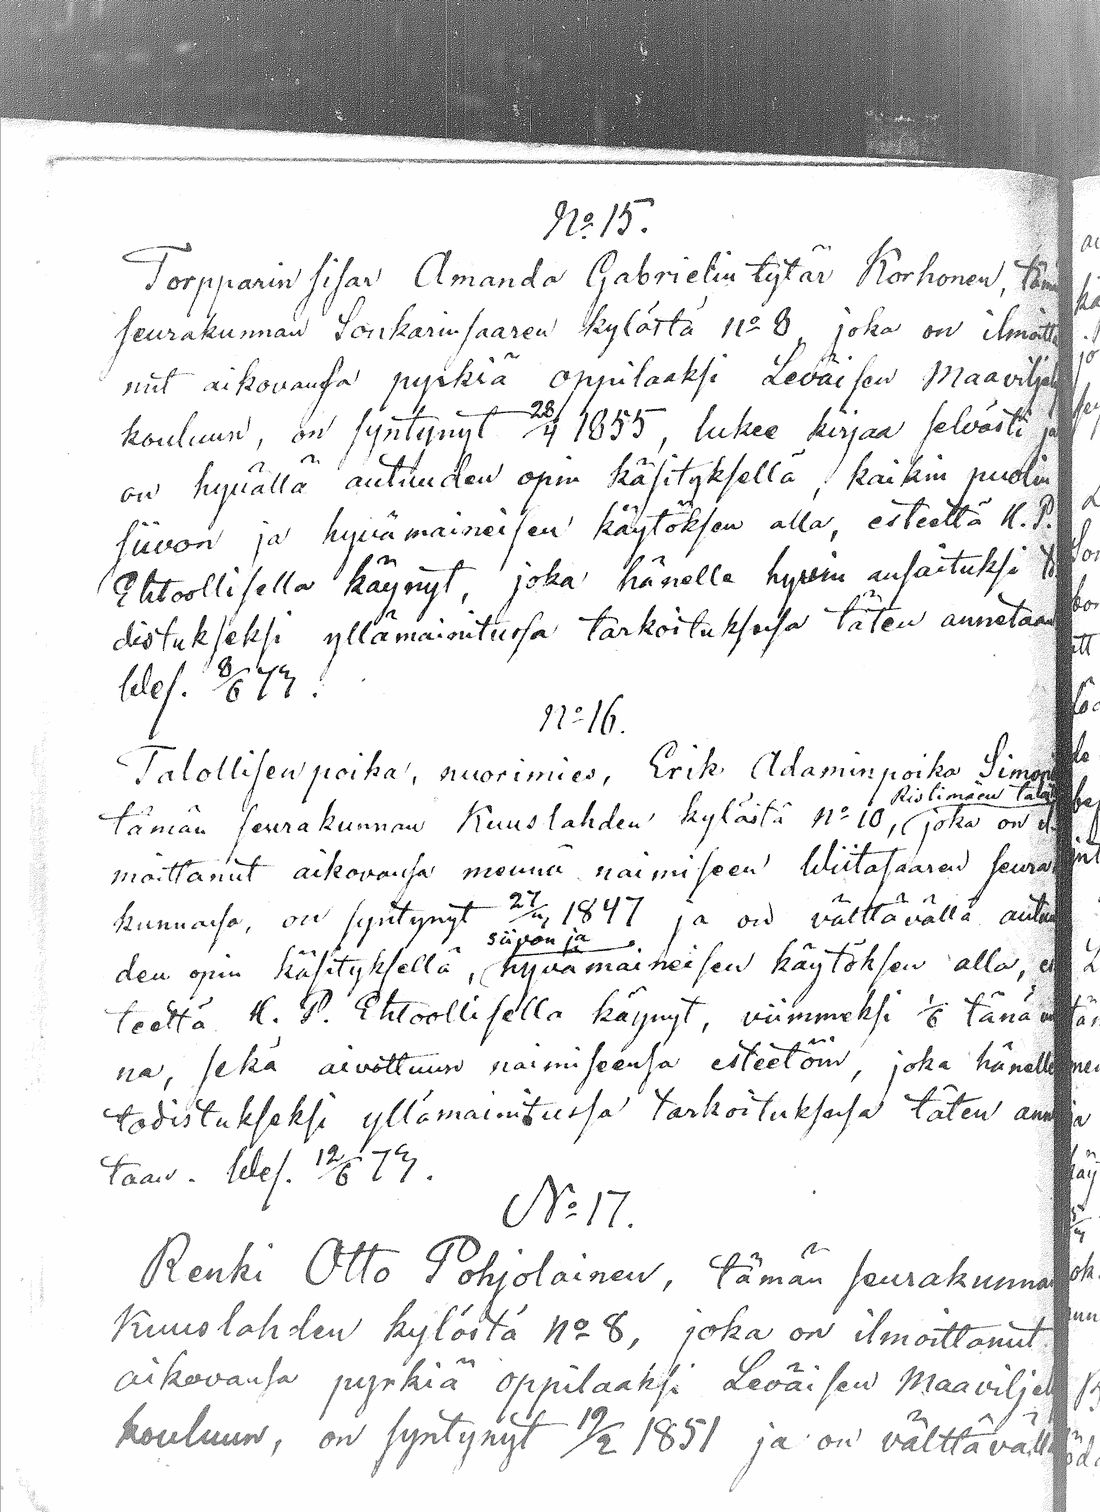 No 15.
Torpparin sisar Amanda Gabrielin tytär Korhonen, täm
seurakunnan Sonkarinsaaren kylästä no 8, joka on ilmoitta
nut aikovansa pyrkiä oppilaaksi Leväisen Maaviljel
kouluun, on syntynyt 28/4 1855, lukee kirjaa selvästi ja
on hyvällä autuuden opin käsityksellä, kaikin puolin
siivon ja hyvämaineisen käytöksen alla, esteettä H. P.
Ehtoollisella käynyt, joka hänelle hyvin ansaituksi to
distukseksi yllämainitussa tarkoituksessa täten annetaan
Wes. 8/6 73.
No 16.
Talollisen poika, nuorimies, Erik Adaminpoika Simon
Ristimäen talo
tämän seurakunnan Kuuslahden kylästä no 10, joka on il
moittanut aikovansa mennä naimiseen Wiitasaaren seura
kunnassa, on syntynyt 27/11 1847 ja on välttävällä autuu
siivon ja
den opin käsityksellä, hyvämaineisen käytöksen alla, es
teettä H. P. Ehtoollisella käynyt, viimmeksi 1/6 tänä vu
na, sekä aivottuun naimiseensa esteetöin, joka hänelle
todistukseksi yllämainitussa tarkoituksessa täten anne
taan. Wes. 12/6 73.
No 17.
Renki Otto Pohjolainen, tämän seurakunnan
Kuuslahden kylästä no 8, joka on ilmoittanut
aikovansa pyrkiä oppilaaksi Leväisen Maaviljel
kouluun, on syntynyt 19/2 1851 ja on välttävällä